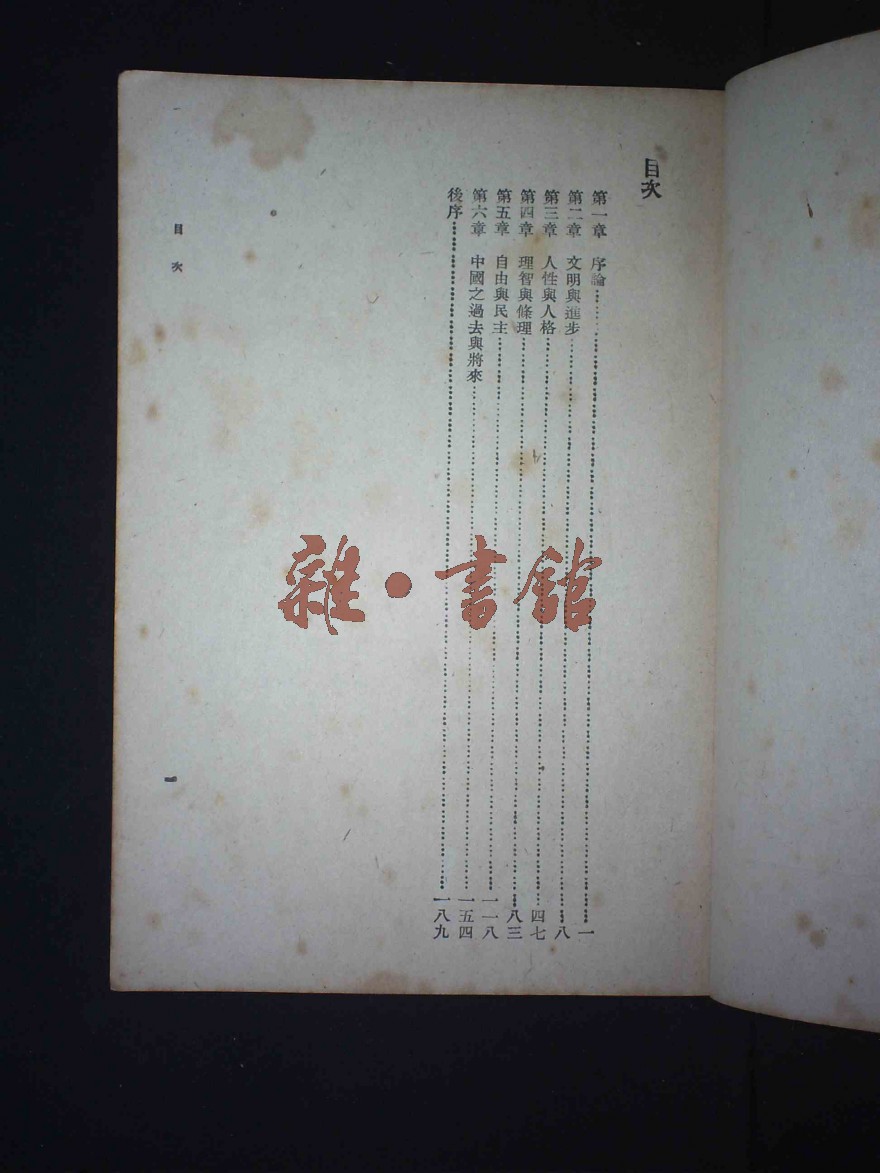 目次
第一章 序論……一
第二章 文明與進步……八
第三章 人性與人格……四七
第四章 理智與條理……八三
第五章 自由與民主……一一八
第六章 中國之過去與將來……一五四
後序……一八九
目次
一
雜·書館